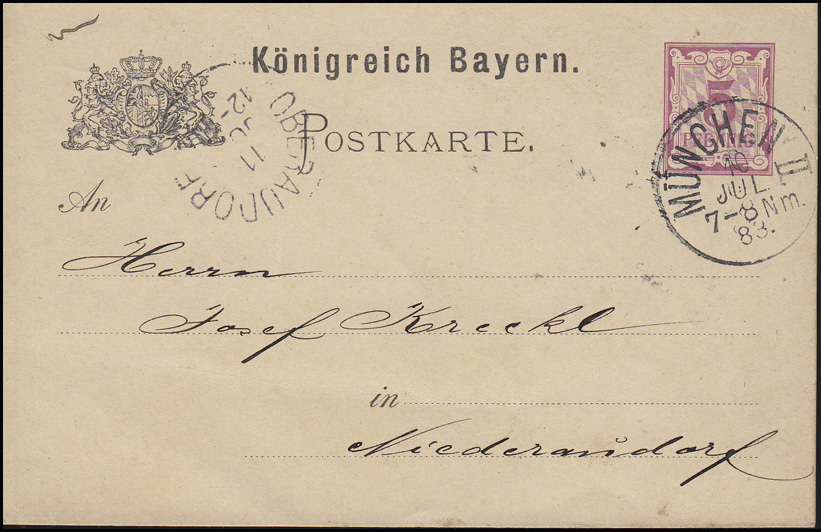 Königreich Bayern.
POSTKARTE.
OBERAUDORF
11
12-
MÜNCHEN II.
10
JUL.
7-8 Nm.
83.
An
Herrn
Josef Kreckl
in
Niederaudorf